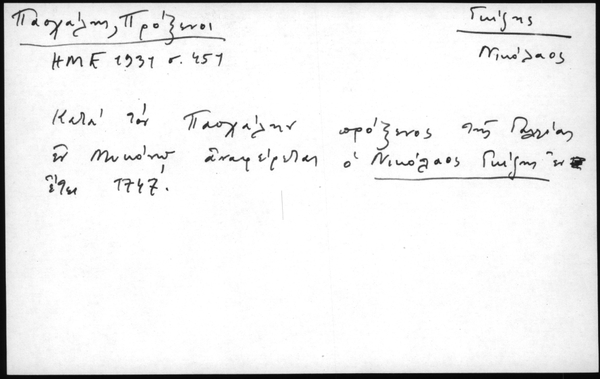 Πασχάλης, Πρόξενοι
ΗΜΕ 1931 σ. 451
Γκίζης
Νικόλαος
Κατά τόν Πασχάλην πρόξενος τῆς Γαλλίας
ἐν Μυκόνῳ ἀναφέρεται ὁ Νικόλαος Γκίζης ἐν
ἔτει 1747.